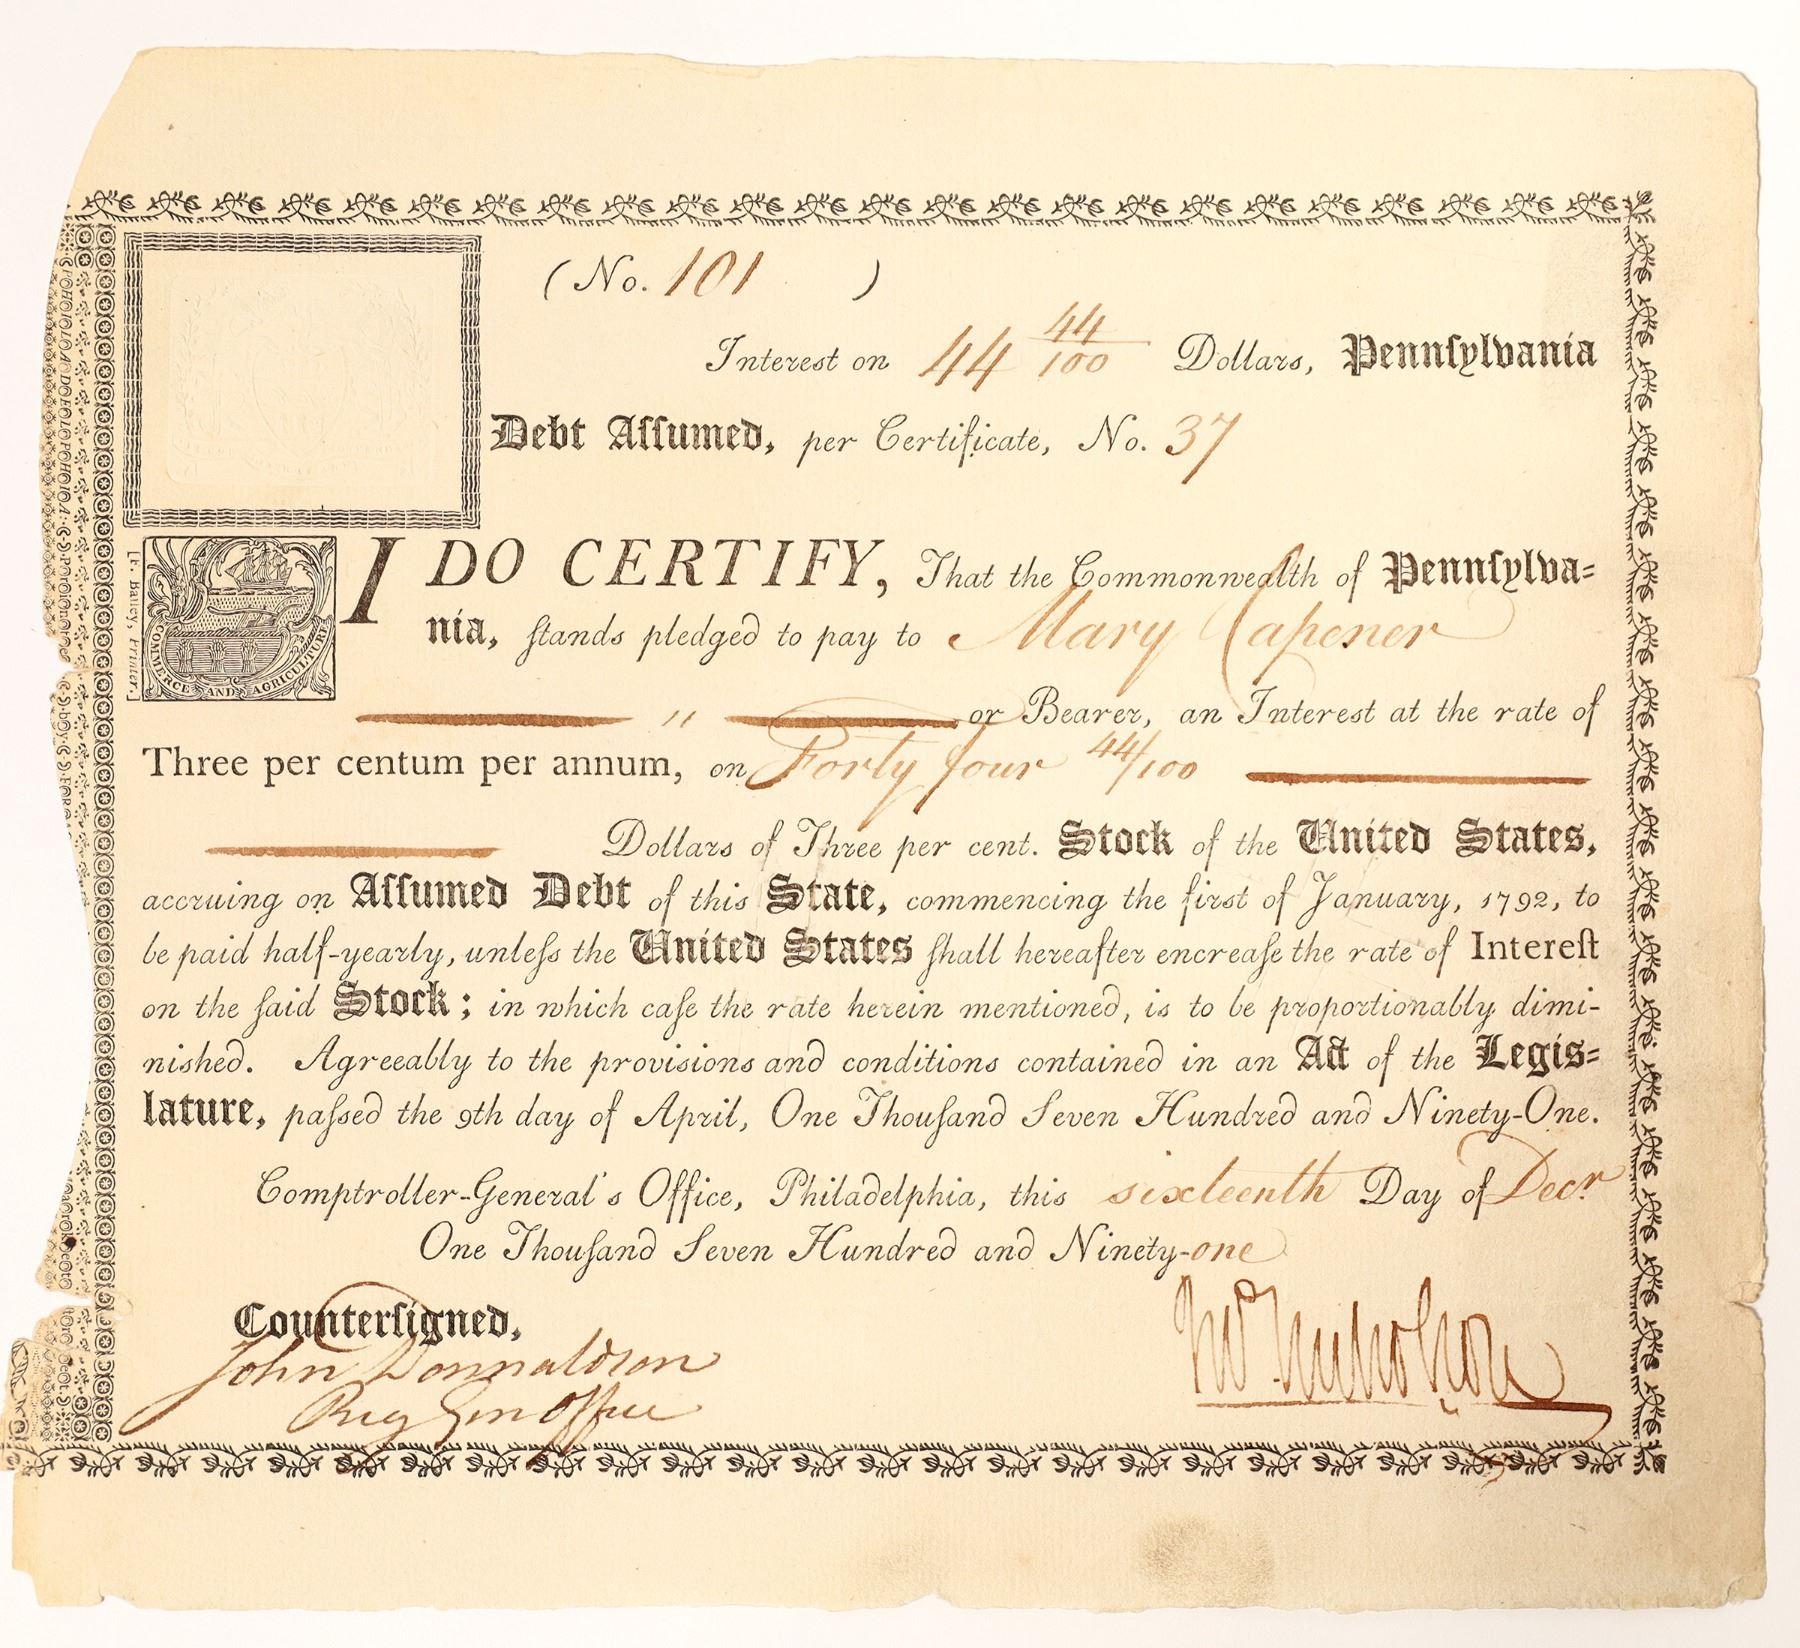 (No. 101 )
Interest on 44 44/100 Dollars, Pennſylvania
Debt Aſſumed, per Certificate, No. 37
I DO CERTIFY, That the Commonwealth of Pennſylva=
nia, ſtands pledged to pay to Mary Capener
" or Bearer, an Intereſt at the rate of
Three per centum per annum, on Forty four 44/100
Dollars of Three per cent. Stock of the United States,
accruing on Aſſumed Debt of this State, commencing the firſt of January, 1792, to
be paid half-yearly, unleſs the United States ſhall hereafter encreaſe the rate of Intereſt
on the ſaid Stock; in which caſe the rate herein mentioned, is to be proportionably dimi-
nished. Agreeably to the provisions and conditions contained in an Act of the Legis=
lature, paſſed the 9th day of April, One Thouſand Seven Hundred and Ninety-One.
Comptroller-General's Office, Philadelphia, this sixteenth Day of Decr.
One Thouſand Seven Hundred and Ninety-one
Counterſigned,
John Donnaldson
Reg Gen Office
Jno. Nicholson
[F. Bailey, Printer.]
COMMERCE AND AGRICULTURE